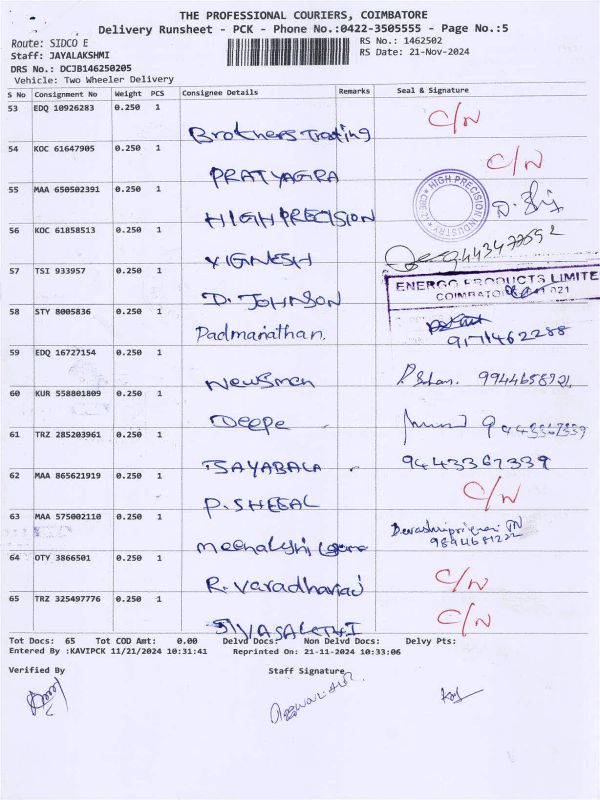 THE PROFESSIONAL COURIERS, COIMBATORE
Delivery Runsheet - PCK - Phone No.:0422-3505555 - Page No.:5
Route: SIDCO E RS No.: 1462502
Staff: JAYALAKSHMI RS Date: 21-Nov-2024
DRS No.: DCJB146250205
Vehicle: Two Wheeler Delivery
S No Consignment No Weight PCS Consignee Details Remarks Seal & Signature
53 EDQ 10926283 0.250 1 Brothers Trading C/N
54 KOC 61647905 0.250 1 PRATYAGRA C/N
55 MAA 650502391 0.250 1 HIGH PRECISION HIGH PRECISION INDUSTRY
56 KOC 61858513 0.250 1 VIGNESH
57 TSI 933957 0.250 1 D. JOHNSON ENERGO PRODUCTS LIMITE
58 STY 8005836 0.250 1 Padmanathan. 9171462288
59 EDQ 16727154 0.250 1 Newsman 9944658721.
60 KUR 558801809 0.250 1 Deepe 9443367339
61 TRZ 285203961 0.250 1 9443367339
62 MAA 865621919 0.250 1 C/N
63 MAA 575002110 0.250 1
64 OTY 3866501 0.250 1 C/N
65 TRZ 325497776 0.250 1 C/N
Tot Docs: 65 Tot COD Amt: 0.00 Delvd Docs: Non Delvd Docs: Delvy Pts:
Entered By :KAVIPCK 11/21/2024 10:31:41 Reprinted On: 21-11-2024 10:33:06
Verified By Staff Signature